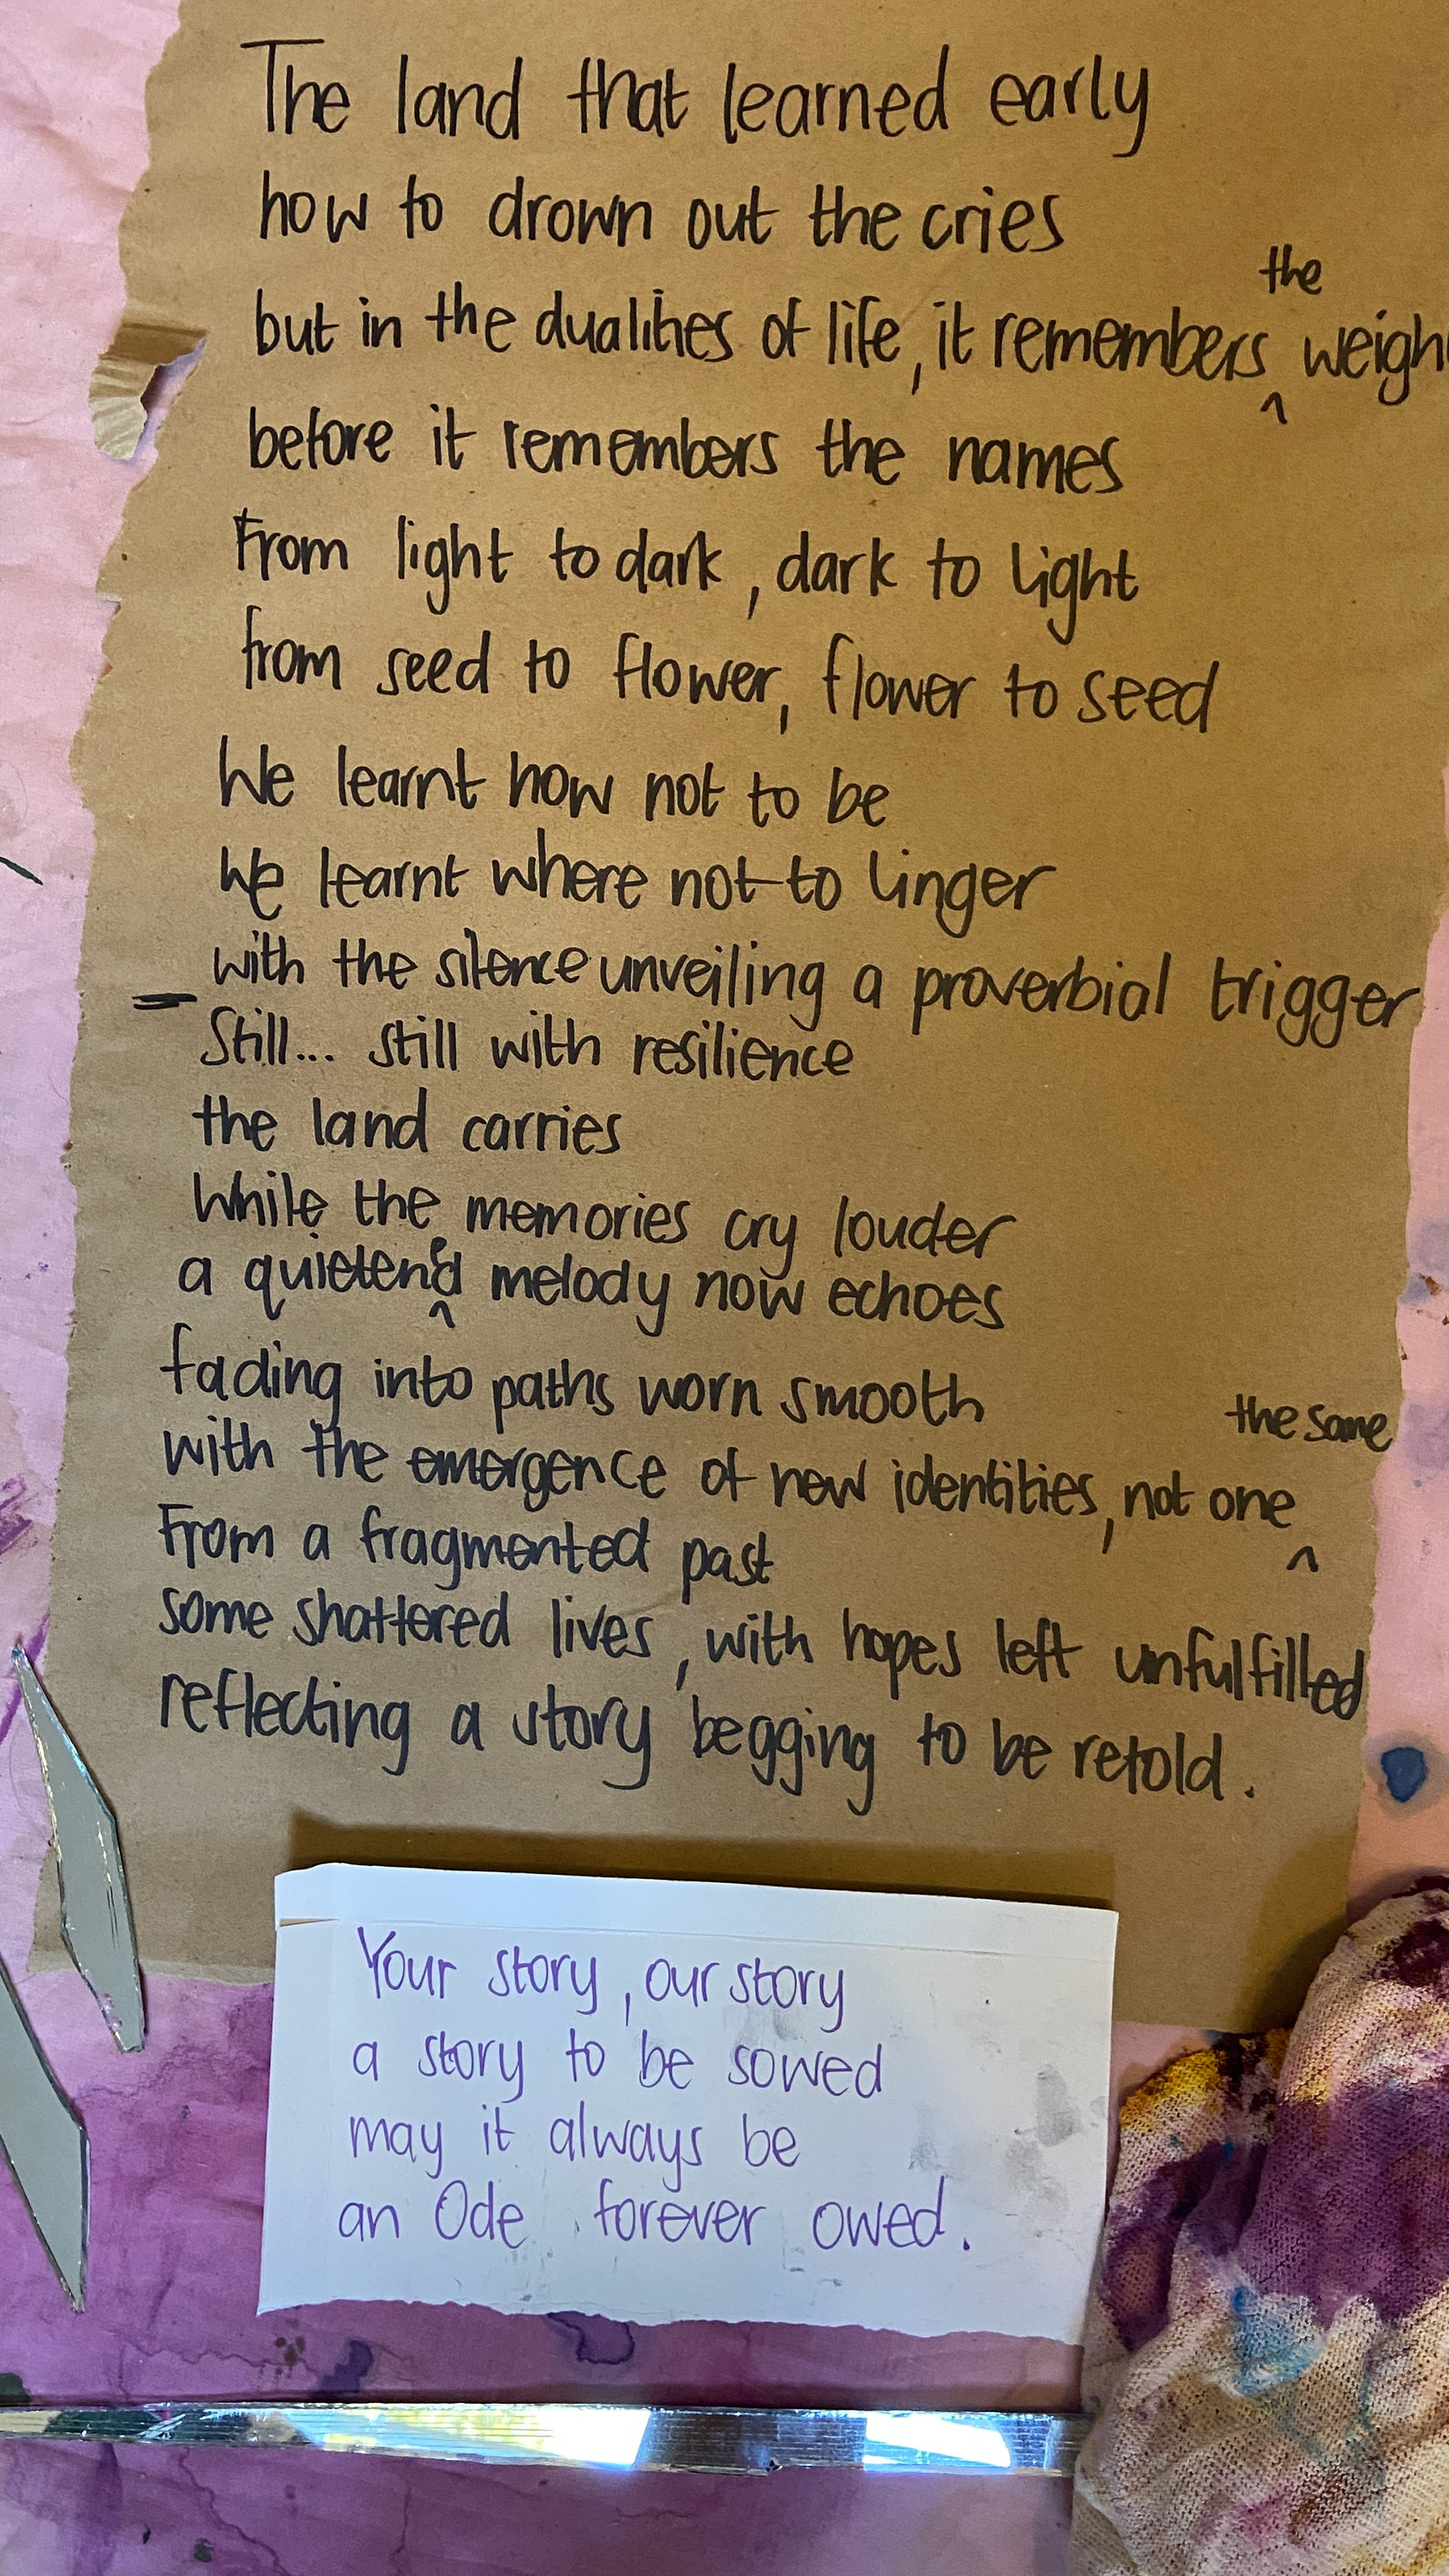 The land that learned early
how to drown out the cries
but in the dualities of life, it remembers the weigh
before it remembers the names
From light to dark, dark to light
from seed to flower, flower to seed
We learnt how not to be
We learnt where not to linger
with the silence unveiling a proverbial trigger
Still... still with resilience
the land carries
While the memories cry louder
a quietened melody now echoes
fading into paths worn smooth
with the emergence of new identities, not one the same
From a fragmented past
some shattered lives, with hopes left unfulfilled
reflecting a story begging to be retold.
Your story, our story
a story to be sowed
may it always be
an Ode forever owed.